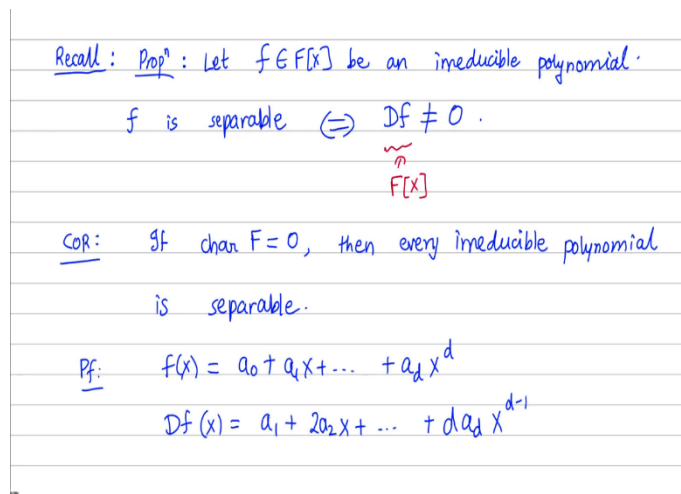 Recall : Propⁿ : Let f ∈ F[x] be an irreducible polynomial.
f is separable ⇔ Df ≠ 0 .
F[x]
COR : If char F = 0, then every irreducible polynomial
is separable.
Pf: f(x) = a₀ + a₁x + ... + a_d x^d
Df (x) = a₁ + 2a₂x + ... + d a_d x^{d-1}